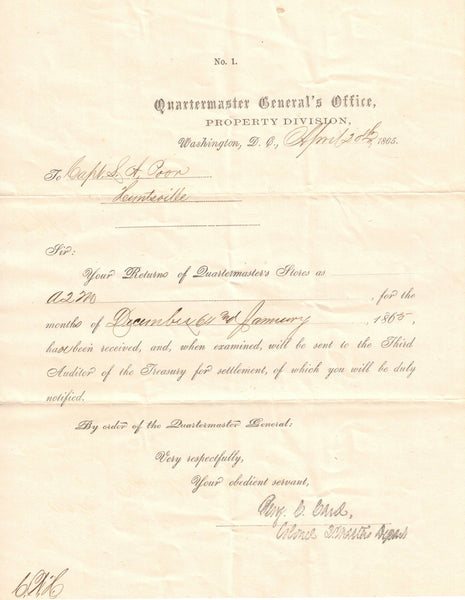 No. 1.
Quartermaster General's Office,
PROPERTY DIVISION,
Washington, D. C., April 20th, 1865.
To Capt. S. A. Poor
Huntsville
Sir:
Your Returns of Quartermaster's Stores as
A.Q.M. , for the
months of December 64 and January , 1865,
have been received, and, when examined, will be sent to the Third
Auditor of the Treasury for settlement, of which you will be duly
notified.
By order of the Quartermaster General:
Very respectfully,
Your obedient servant,
Benj. C. Card,
Colonel